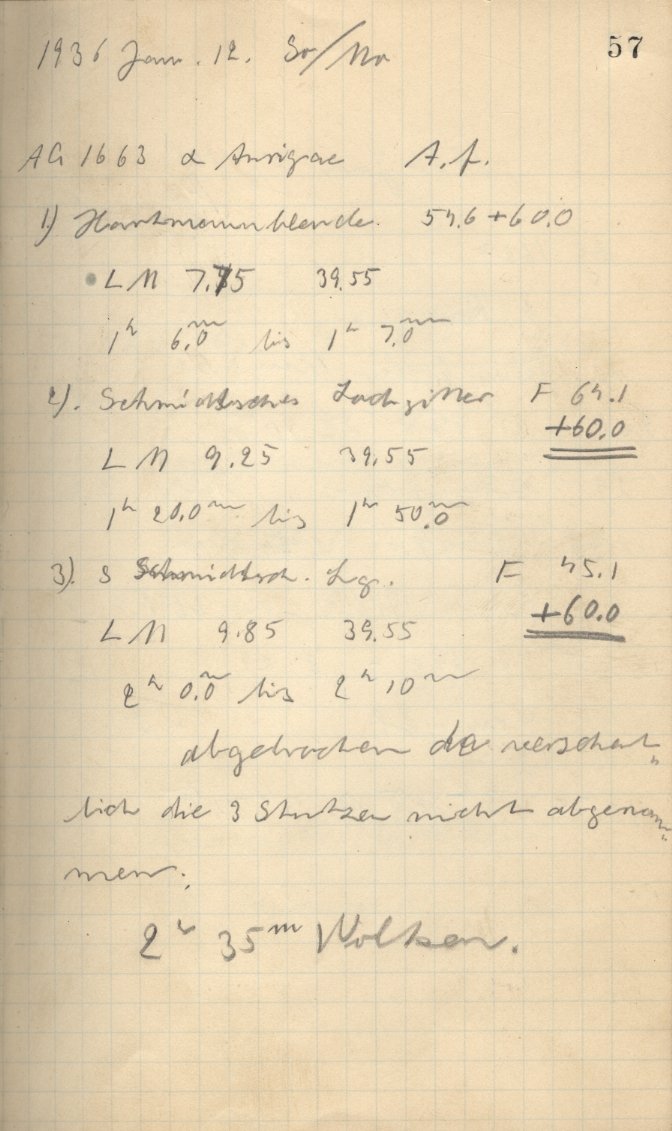 57
1936 Jan. 12. So/Mo
AG 1663 α Aurigae A.f.
1) Hartmannblende. 54,6 + 60.0
LM 7.75 39.55
1h 6.0m bis 1h 7.0m
2). Schmidtsches Lochgitter F 64.1
+60.0
LM 9.25 39.55
1h 20.0m bis 1h 50.0m
3). S Schmidtsch. Lg. F 45.1
+60.0
LM 9.85 39.55
2h 0.0m bis 2h 10m
abgebrochen da versehent„
lich die 3 Stutzen nicht abgenom„
men.
2h 35m Wolken.